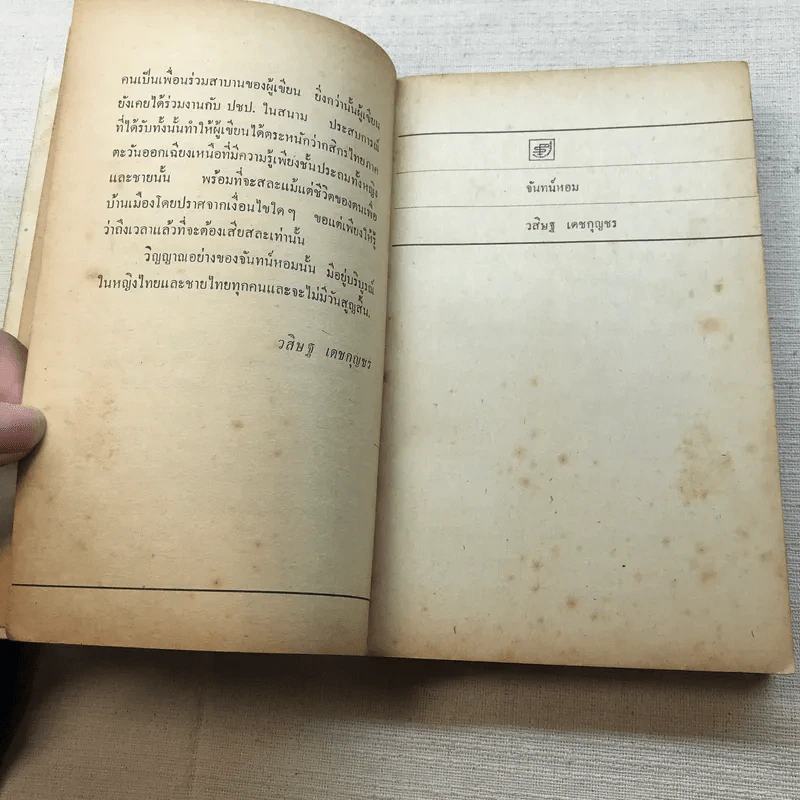 คนเป็นเพื่อนร่วมสาบานของผู้เขียน ยิ่งกว่านั้นผู้เขียน
ยังเคยได้ร่วมงานกับ ปชป. ในสนาม ประสบการณ์
ที่ได้รับทั้งนั้นทำให้ผู้เขียนได้ตระหนักว่ากสิกรไทยภาค
ตะวันออกเฉียงเหนือที่มีความรู้เพียงชั้นประถมทั้งหญิง
และชายนั้น พร้อมที่จะสละแม้แต่ชีวิตของตนเพื่อ
บ้านเมืองโดยปราศจากเงื่อนไขใด ๆ ขอแต่เพียงให้รู้
ว่าถึงเวลาแล้วที่จะต้องเสียสละเท่านั้น
วิญญาณอย่างของจันทน์หอมนั้น มีอยู่บริบูรณ์
ในหญิงไทยและชายไทยทุกคนและจะไม่มีวันสูญสิ้น.
วสิษฐ เดชกุญชร
จันทน์หอม
วสิษฐ เดชกุญชร